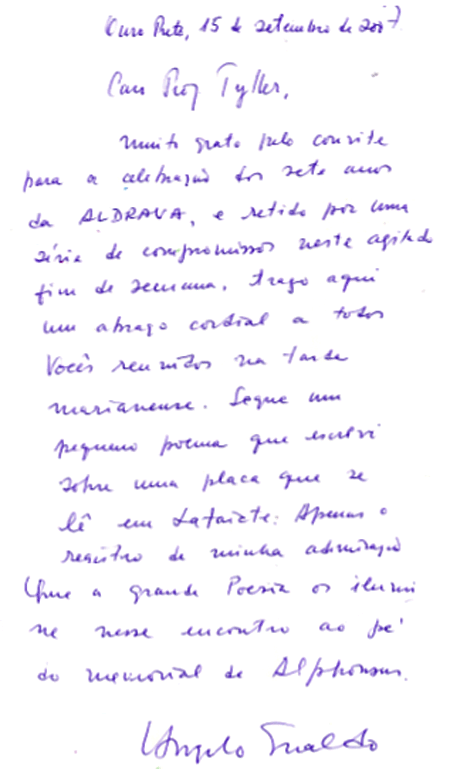 Ouro Preto, 15 de setembro de 2007
Caro Prof Tyller,
muito grato pelo convite
para a celebração dos sete anos
da ALDRAVA, e retido por uma
série de compromissos neste agitado
fim de semana, trago aqui
um abraço cordial a todos
Vocês reunidos na tarde
marianense. Segue um
pequeno poema que escrevi
sobre uma placa que se
lê em Lafaiete: Apenas o
registro de minha admiração
Que a grande Poesia os ilumi
ne nesse encontro ao pé
do memorial de Alphonsus.
Angelo Oswaldo